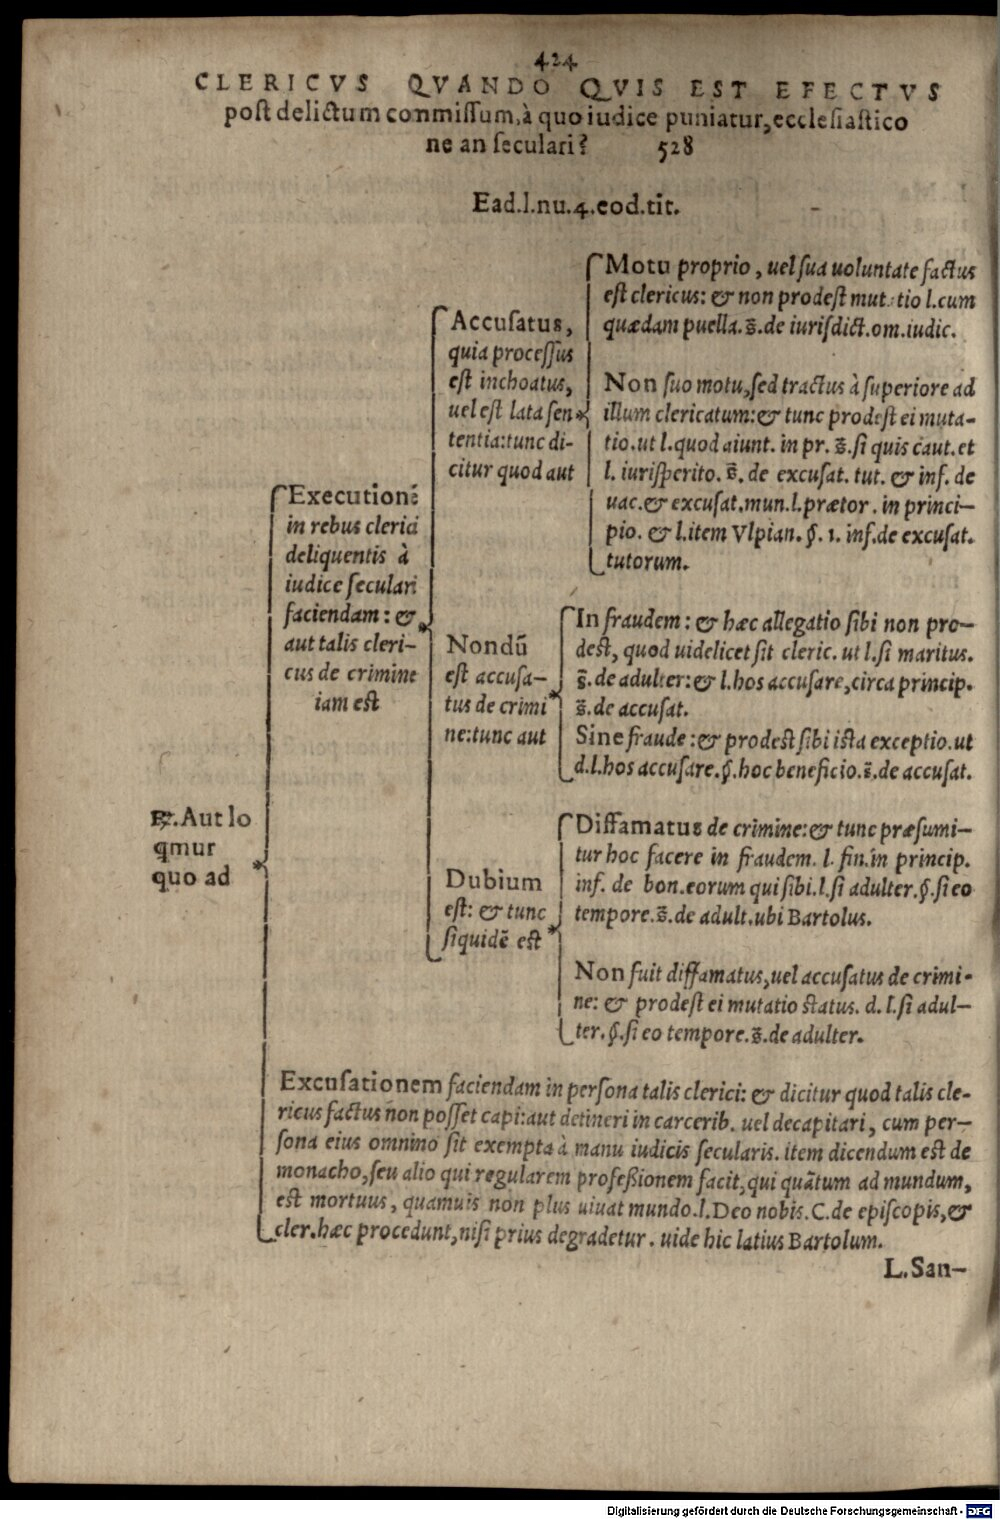 424
CLERICVS QVANDO QVIS EST EFECTVS
post delictum conmissum, à quo iudice puniatur, ecclesiastico
ne an seculari? 528
Ead.l.nu.4.eod.tit.
℞.Aut lo
qmur
quo ad
Executionē
in rebus clerici
deliquentis à
iudice seculari
faciendam: &
aut talis cleri-
cus de crimine
iam est
Accusatus,
quia processus
est inchoatus,
uel est lata sen
tentia:tunc di-
citur quod aut
Motu proprio, uel sua uoluntate factus
est clericus: & non prodest mut tio l.cum
quædam puella. s̄.de iurisdict.om.iudic.
Non suo motu, sed tractus à superiore ad
illum clericatum:& tunc prodest ei muta-
tio.ut l.quod aiunt. in pr. s̄.si quis caut.et
l. iurisperito. s̄. de excusat. tut. & inf. de
uac.& excusat.mun.l.prætor. in princi-
pio. & l.item Vlpian. §. 1. inf.de excusat.
tutorum.
Nondū
est accusa-
tus de crimi
ne:tunc aut
In fraudem: & hæc allegatio sibi non pro-
dest, quod uidelicet sit cleric. ut l.si maritus.
s̄.de adulter:& l.hos accusare,circa princip.
s̄.de accusat.
Sine fraude:& prodest sibi ista exceptio.ut
d.l.hos accusare.§.hoc beneficio.s̄.de accusat.
Dubium
est: & tunc
siquidē est
Diffamatus de crimine:& tunc præsumi-
tur hoc facere in fraudem. l. fin.in princip.
inf. de bon.eorum qui sibi.l.si adulter.§.si eo
tempore.s̄.de adult.ubi Bartolus.
Non fuit diffamatus,uel accusatus de crimi-
ne: & prodest ei mutatio status. d. l.si adul-
ter.§.si eo tempore.s̄.de adulter.
Excusationem faciendam in persona talis clerici: & dicitur quod talis cle-
ricus factus non posset capi:aut detineri in carcerib. uel decapitari, cum per-
sona eius omnino sit exempta à manu iudicis secularis. item dicendum est de
monacho,seu alio qui regularem professionem facit,qui quātum ad mundum,
est mortuus, quamuis non plus uiuat mundo.l.Deo nobis.C.de episcopis,&
cler.hæc procedunt,nisi prius degradetur. uide hic latius Bartolum.
L.San-
Digitalisierung gefördert durch die Deutsche Forschungsgemeinschaft - DFG